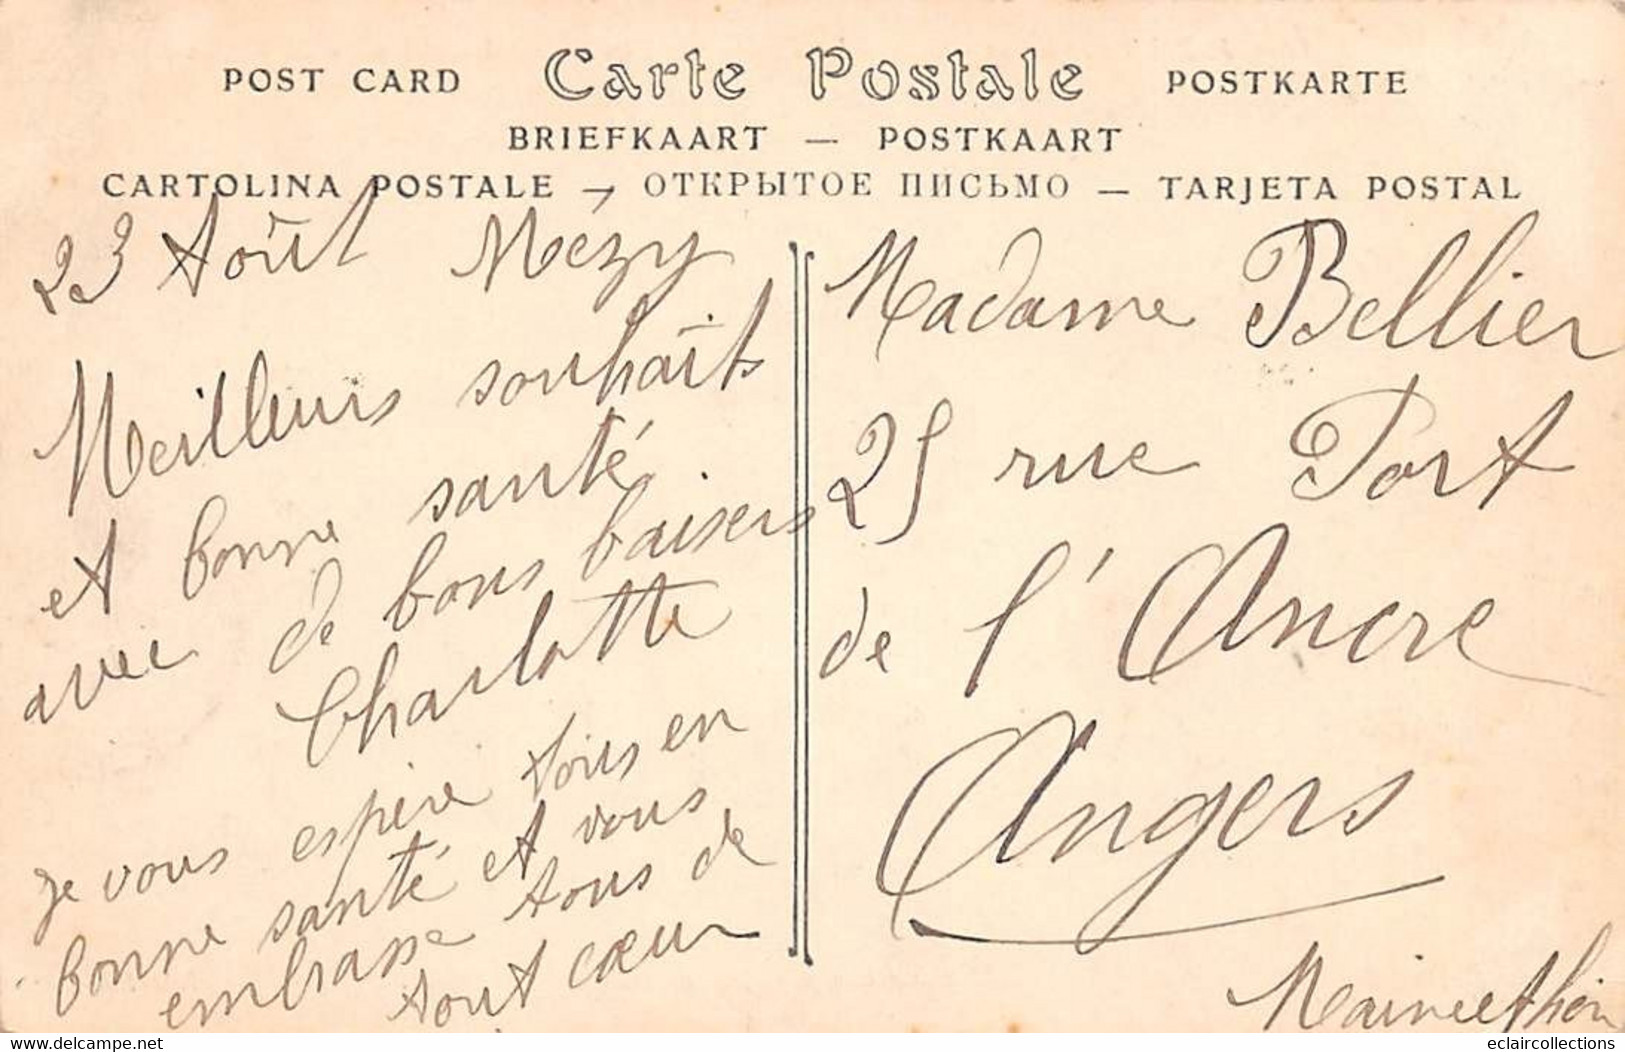 POST CARD Carte Postale POSTKARTE
BRIEFKAART — POSTKAART
CARTOLINA POSTALE — ОТКРЫТОЕ ПИСЬМО — TARJETA POSTAL
23 Août Mézy
Meilleurs souhaits
et bonne santé
avec de bons baisers
Charlotte
je vous espère tous en
bonne santé et vous
embrasse tous de
tout cœur
Madame Bellier
25 rue Port
de l'Ancre
Angers
Maineethloir
www.delcampe.net
eclaircollections